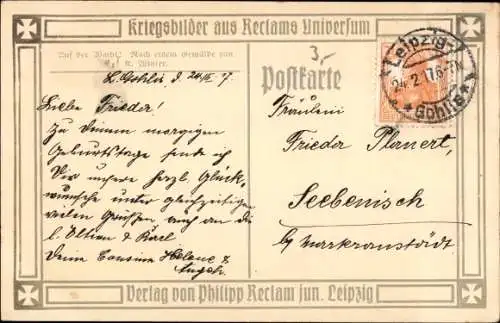 Kriegsbilder aus Reclams Universum
Auf der Wacht. Nach einem Gemälde von
K. Winter.
3,-
Postkarte
Leipzig-
24.2.17.6-7N.
* Gohlis *
L. Gohlis, d. 24/II. 17
Liebe Frieda!
Zu Deinem morgigen
Geburtstage sende ich
Dir unsere herzl. Glück-
wünsche unter gleichzeitigen
vielen Grüßen auch an die
l. Eltern & Karl
Deine Cousine Helene &
Fräulein
Frieda Planert,
Seebenisch
b/ Markranstädt
Verlag von Philipp Reclam jun. Leipzig